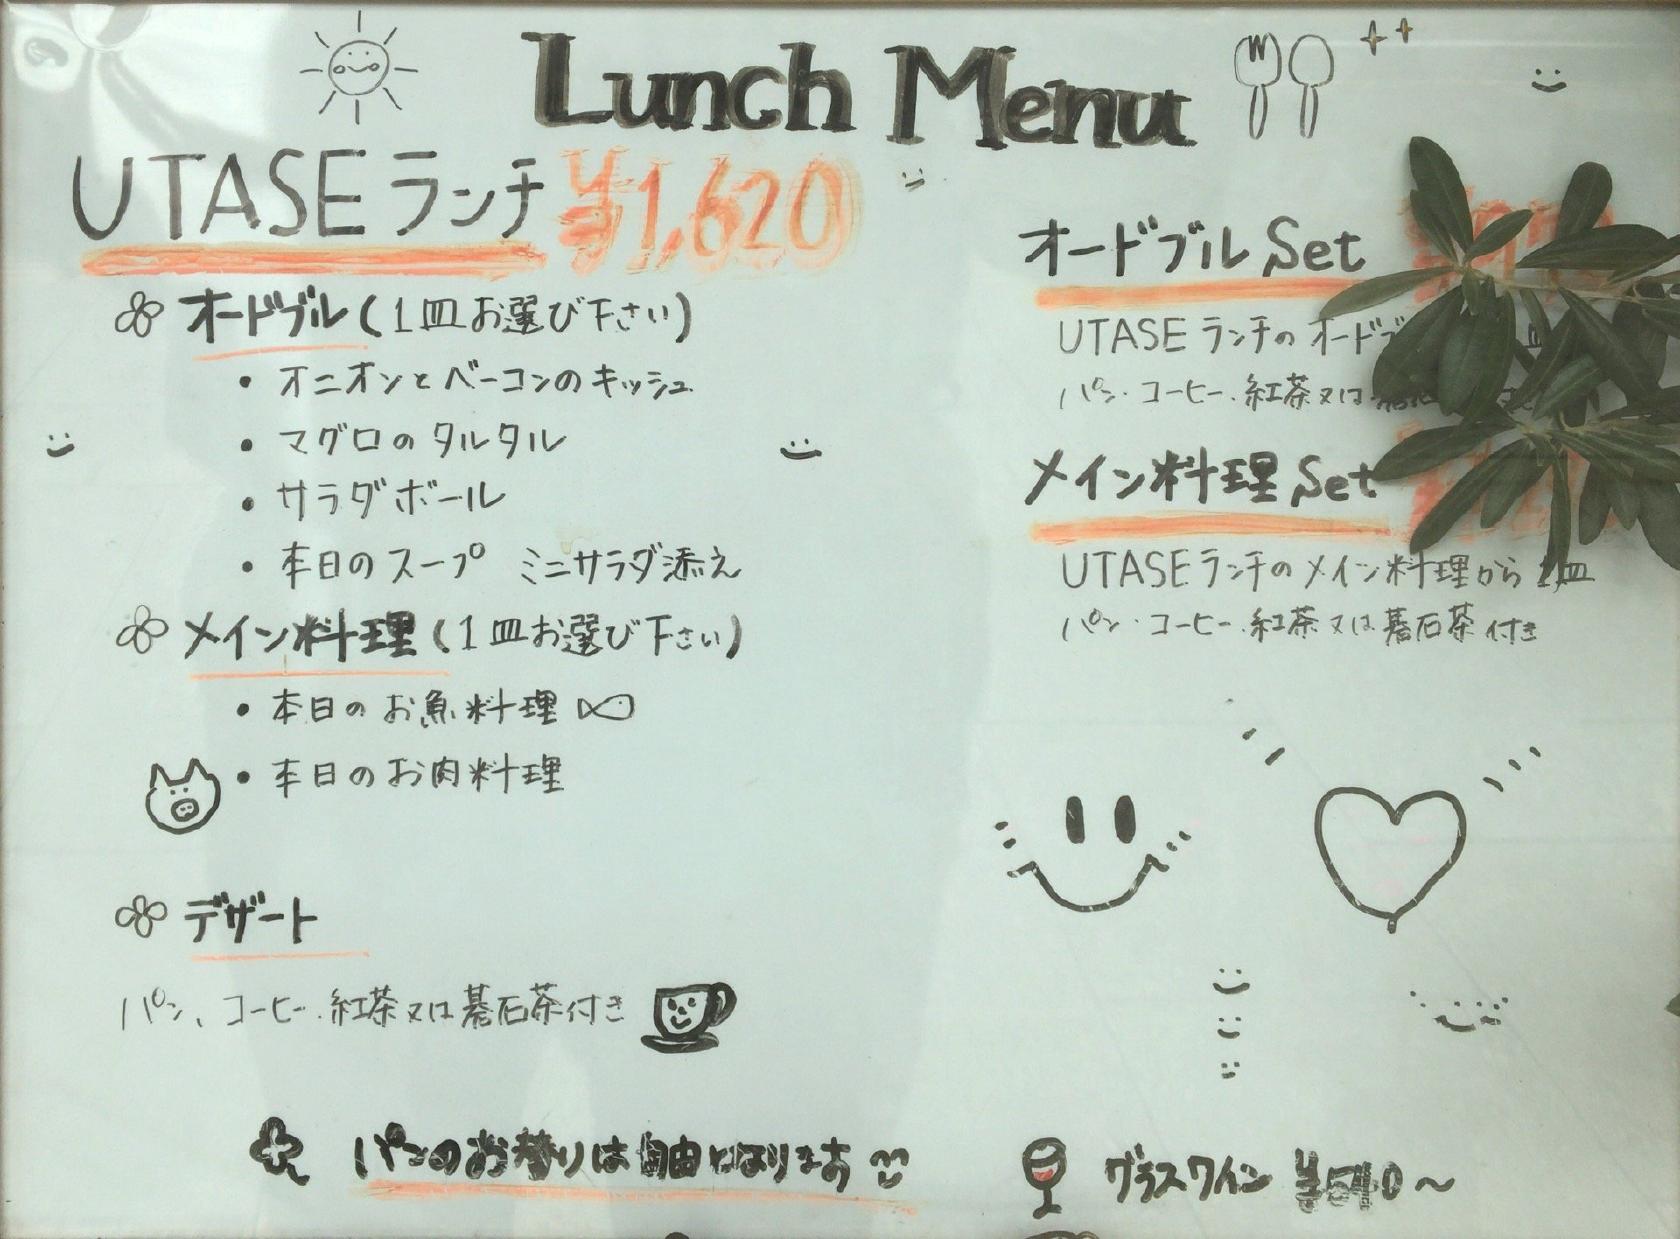 Lunch Menu
UTASEランチ ¥1,620
オードブル(1皿お選び下さい)
・オニオンとベーコンのキッシュ
・マグロのタルタル
・サラダボール
・本日のスープ ミニサラダ添え
メイン料理(1皿お選び下さい)
・本日のお魚料理
・本日のお肉料理
デザート
パン、コーヒー・紅茶又は碁石茶付き
パンのお替りは自由となります
オードブルSet
UTASEランチのオードブ
パン・コーヒー・紅茶又は
メイン料理Set
UTASEランチのメイン料理から1皿
パン・コーヒー・紅茶又は碁石茶付き
グラスワイン ¥540~